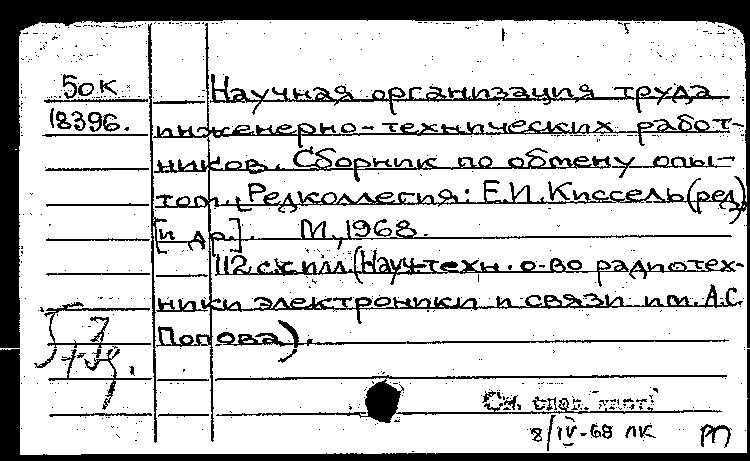 50к
18396.
Научная организация труда
инженерно-технических работ-
ников. Сборник по обмену опы-
том. [Редколлегия: Е.И. Киссель (ред)
[и др.]. М, 1968.
112 с.
(Науч-техн. о-во радиотех-
ники электроники и связи им. А.С.
Попова).
См.
8/IV-68 ЛК